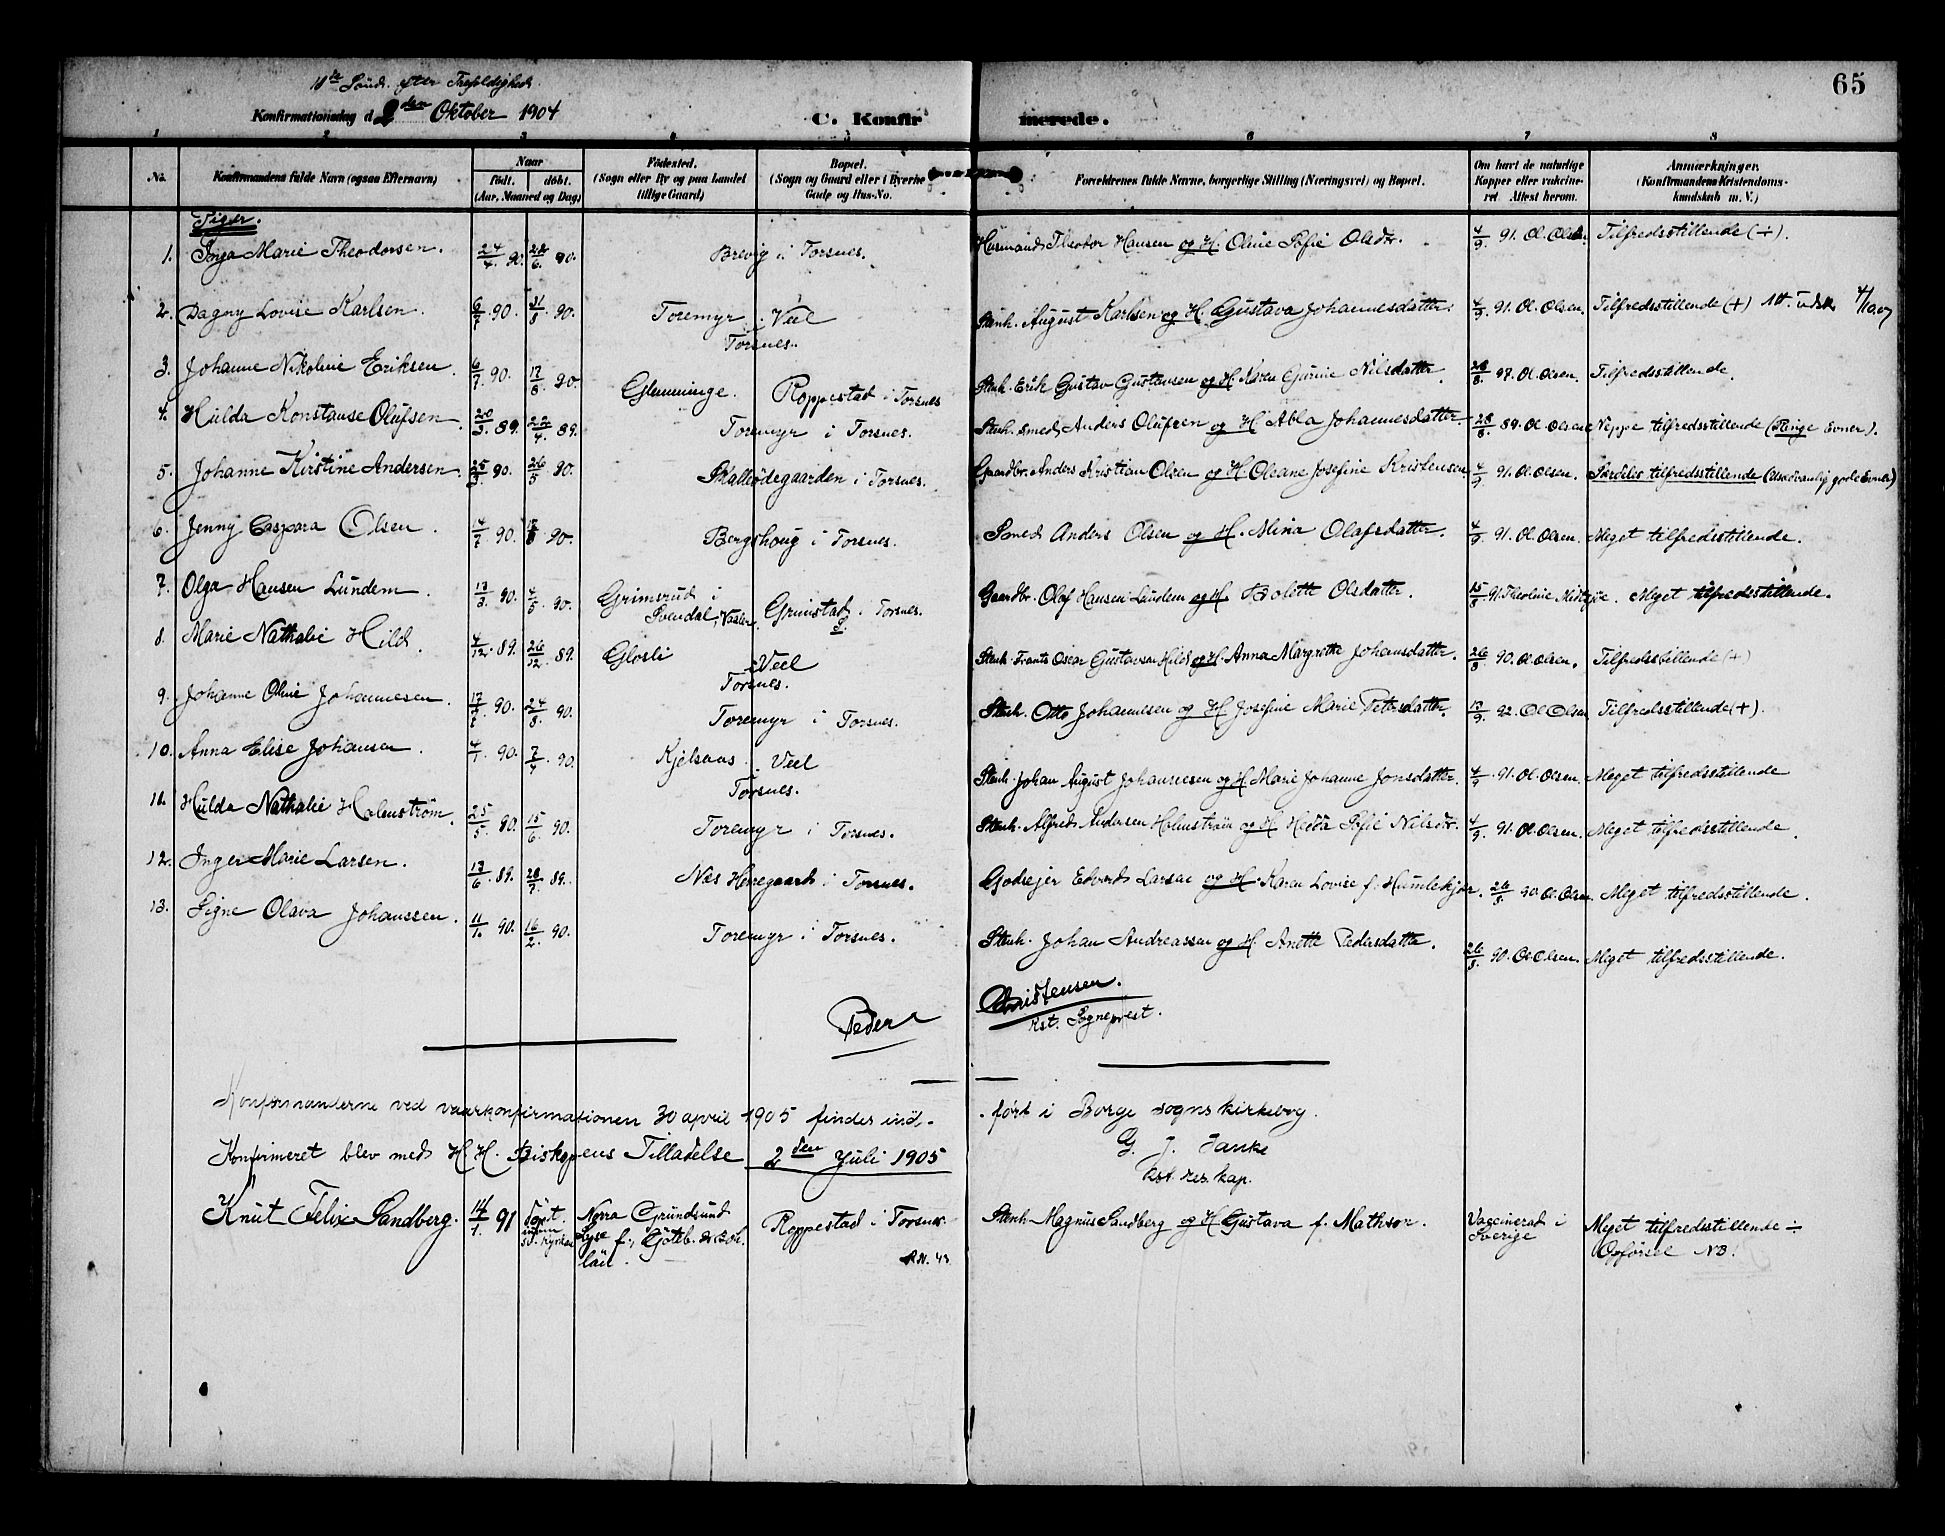 65
18de Sönd. efter Trefoldighed.
Konfirmationsdag d. 2den Oktober 1904
C. Konfirmerede.
1 2 3 4 5 6 7 8
No. Konfirmandens fulde Navn (ogsaa Efternavn) Naar födt. döbt. (Aar, Maaned og Dag) Födested. (Sogn eller By og paa Landet tillige Gaard) Bopæl. (Sogn og Gaard eller i Byerne Gade og Hus-No. Forældrenes fulde Navne, borgerlige Stilling (Næringsvei) og Bopæl. Om havt de naturlige Kopper eller vaccineret. Attest herom. Anmærkninger. (Konfirmandens Kristendomskundskab m. V.)
Piger.
1. Inga Marie Theodorsen. 24/4 90. 22/6. 90. Brevig i Torsnes. Husmand Theodor Hansen og H. Oline Sofie Olsdtr. 4/9 91. Ol. Olsen. Tilfredsstillende (÷).
2. Dagny Lovise Karlsen. 6/7 90. 31/8 90. Toremyr i Veel Torsnes. Stenh. August Karlsen og H. Gustava Johannesdatter. 4/9 91. Ol. Olsen. Tilfredsstillende (+) Att. udst. 4/10.07
3. Johanne Nikoline Eriksen. 6/7 90. 17/8 90. Glemminge. Roppestad i Torsnes Stenh. Erik Gustav Gustavsen og H. Karen Gurine Nilsdatter. 28/8. 97. Ol. Olsen. Tilfredsstillende.
4. Hulda Konstanse Olufsen. 20/3. 89. 22/4. 89. Toremyr i Torsnes. Stenh. smed Anders Olufsen og H. Abla Johannesdatter. 28/8. 89. Ol. Olsen Neppe tilfredsstillende (Ringe Evner).
5. Johanne Kirstine Andersen. 25/3 90. 26/5 90. Skalleödegaarden i Torsnes. Gaardbr. Anders Kristian Olsen og H. Oleane Josefine Kristensen. 4/9 91. Ol. Olsen. Særdeles tilfredsstillende (Usædvanlig gode Evner)
6. Jenny Caspara Olsen. 14/7 90. 17/8 90. Bergshoug i Torsnes. Smed Anders Olsen og H. Mina Olafsdatter. 4/9 91. Ol. Olsen. Meget tilfredsstillende.
7. Olga Hansen Lundem. 13/3 90. 4/5. 90. Grimsrud i Svendal, Vaaler. Grimstad S. i Torsnes. Gaardbr. Olaf Hansen Lundem og H. Bolette Olsdatter. 15/8 91 Theoline Midtøie. Meget tilfredsstillende.
8. Marie Nathalie Hild. 4/12. 89. 26/12. 89. Glosli i Veel Torsnes. Stenh. Frants Oscar Gustavsen Hild og H. Anna Margrethe Johansdatter. 26/8 90. Ol. Olsen. Tilfredsstillende (+)
9. Johanne Oline Johannesen. 17/7 90. 24/8. 90. Toremyr i Torsnes. Stenh. Otto Johannesen og H. Josefine Marie Petersdatter. 13/9. 92. Ol Olsen Tilfredsstillende (+).
10. Anna Elise Johansen. 4/1 90. 7/4 90. Kjölsaas i Veel Torsnes. Stenh. Johan August Johannesen og H. Marie Johanne Jonsdatter. 4/9 91. Ol. Olsen. Meget tilfredsstillende
11. Hulda Nathalie Holmström. 25/5 90. 15/6. 90. Toremyr i Torsnes. Stenh. Alfred Andersen Holmström og H Hedda Sofie Nilsdtr. 4/9 91. Ol. Olsen. Meget tilfredsstillende.
12. Inger Marie Larsen. 13/6. 89. 28/7. 89. Nes Herregaard i Torsnes. Godsejer Edvard Larsen og H. Karen Lovise f. Humlekjær. 26/8. 90. Ol. Olsen Meget tilfredsstillende.
13. Signe Olava Johanssen. 11/1. 90. 16/2. 90. Toremyr i Torsnes. Stenh. Johan Andreassen og H. Anette Pedersdatter. 26/8. 90. Ol. Olsen. Meget tilfredsstillende.
Peder Christensen.
kst. Sogneprest.
Konfirmanderne ved vaarkonfirmationen 30 april 1905 findes ind-ført i Borge sogns kirkebog.
G. J. Janke
kst. res. kap.
Konfirmeret blev med H. H. Biskopens Tilladelse 2den Juli 1905
Knut Felix Sandberg. 14/1. 91 döpt. inom sv. kyrkan Norra Grundsund Lyse f., Göteb. & Boh. län. Roppestad i Torsnes. Stenh. Magnus Sandberg og H. Gustava f. Mathson. Vaccinerad i Sverige Meget tilfredsstillende ÷
Opførsel NB!